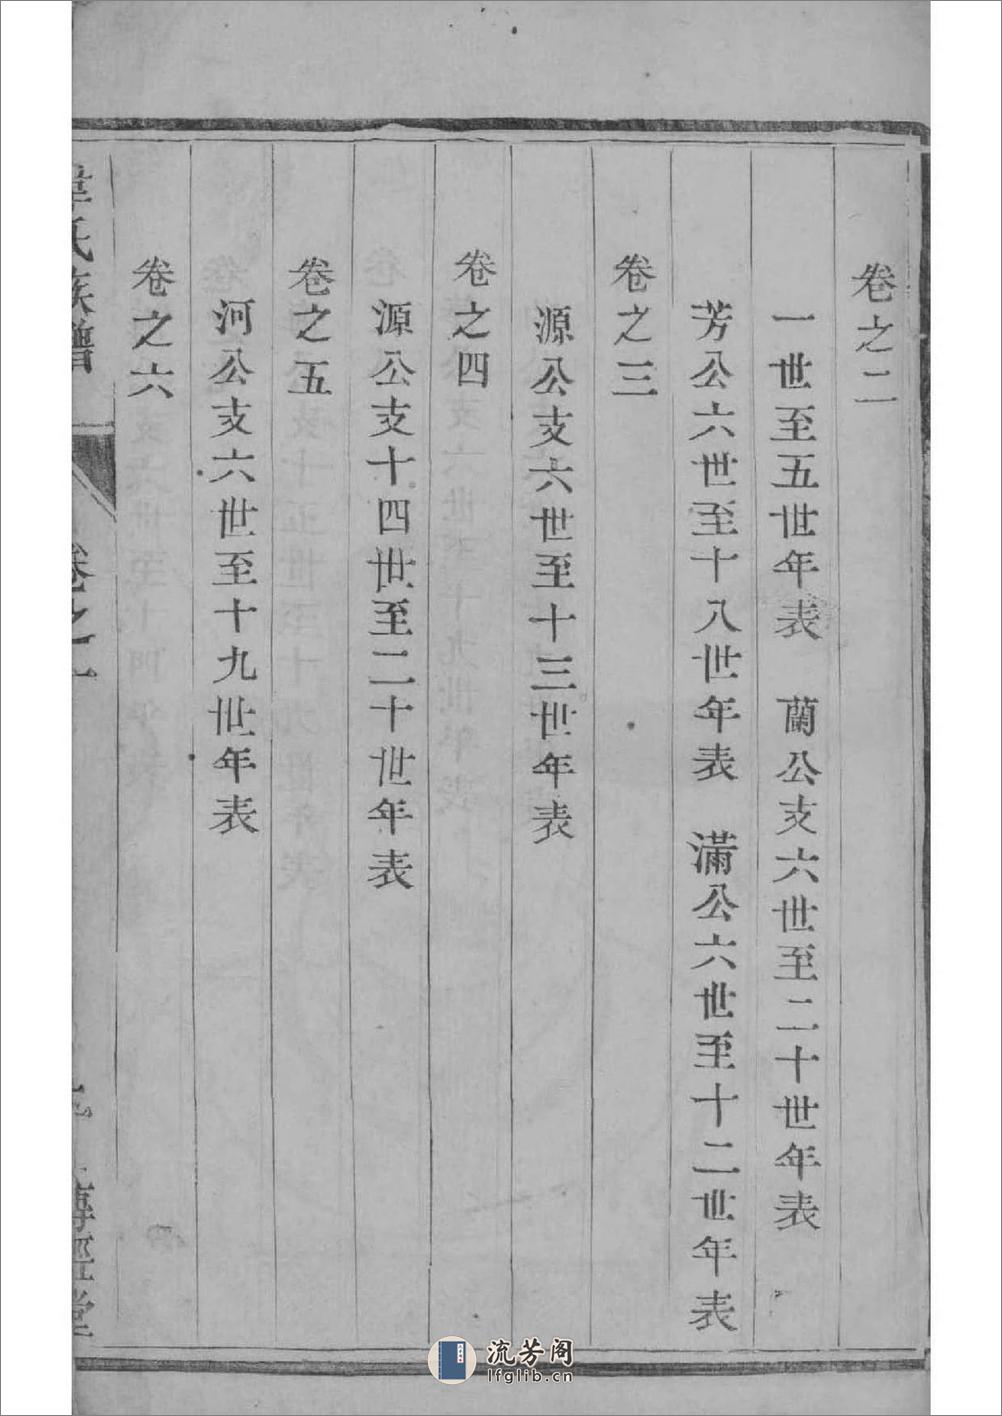 卷之二
一世至五世年表　蘭公支六世至二十世年表
芳公六世至十八世年表　滿公六世至十二世年表
卷之三
源公支六世至十三世年表
卷之四
源公支十四世至二十世年表
卷之五
河公支六世至十九世年表
卷之六
韋氏族譜　卷之　傳經堂
流芳阁
lfglib.cn